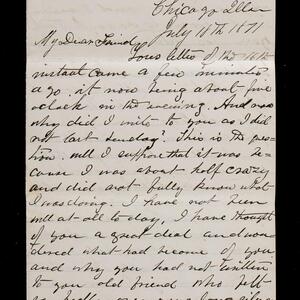 Chicago Ills
July 18th 1871
My Dear Friend
Your letter of the 16th
instant came a few minutes
ago. it now being about five
oclock in the evening. And now
why did I write to you as I did
not last Sunday? This is the ques-
tion. well I suppose that it was be-
cause I was about half crazy
and did not fully know what
I was doing. I have not been
well at all to day, I have thought
of you a great deal and won-
dered what had become of you
and why you had not written
to your old friend who felt
so